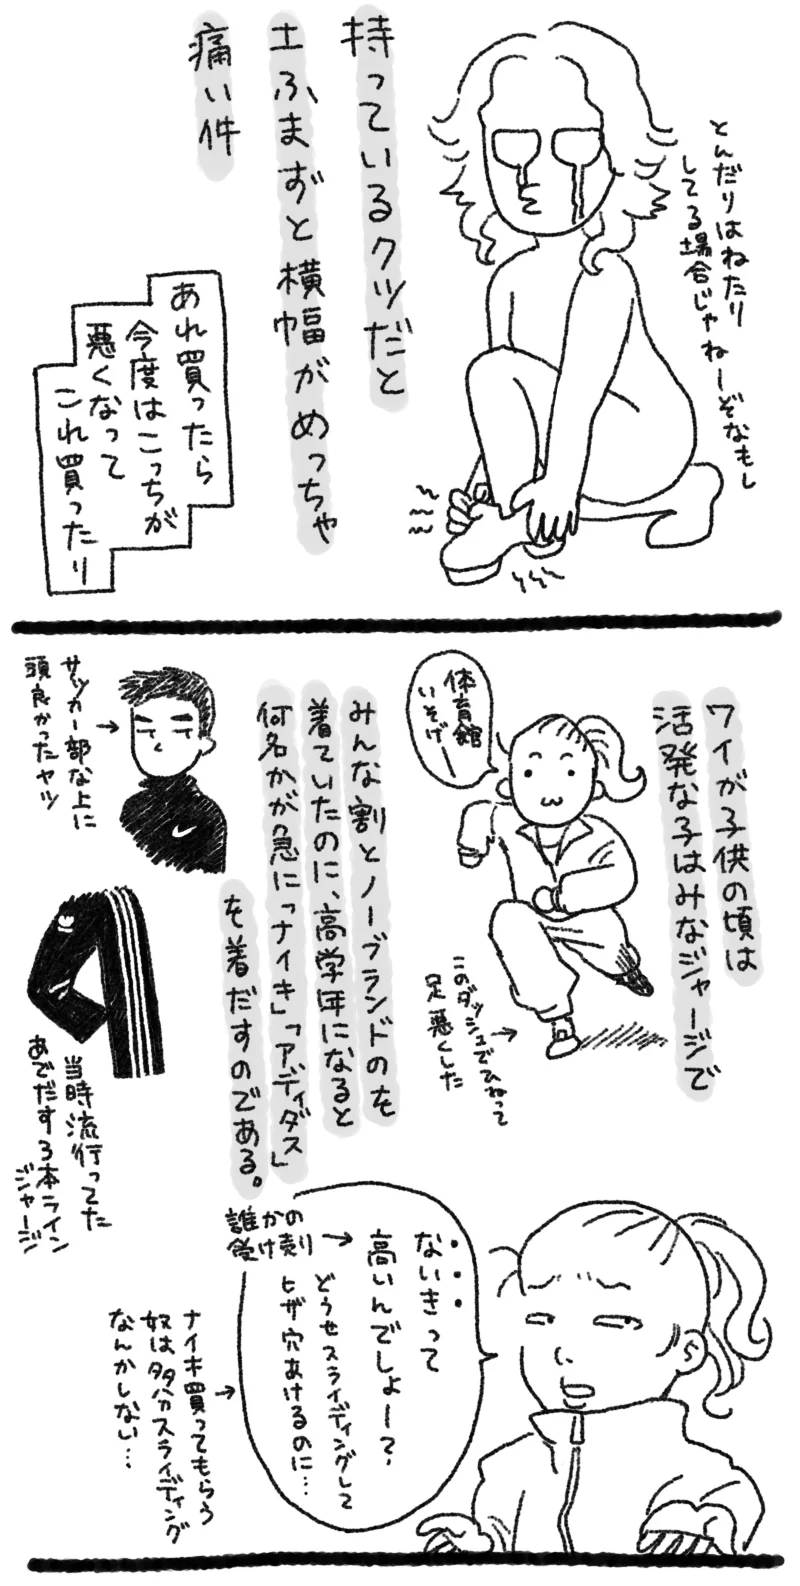 とんだりはねたり
してる場合じゃねーぞなもし
持っているクツだと
土ふまずと横幅がめっちゃ
痛い件
あれ買ったら
今度はこっちが
悪くなって
これ買ったり
ワイが子供の頃は
活発な子はみなジャージで
体育館
いそげー
このダッシュでひねって
足悪くした
みんな割とノーブランドのを
着ていたのに、高学年になると
何名かが急に「ナイキ」「アディダス」
を着だすのである。
サッカー部な上に
頭良かったヤツ
当時流行ってた
あでだすする本ライン
ジャージ
ないきって
高いんでしょー？
どうせスライディングして
ヒザ穴あけるのに…
誰かの
受け売り
ナイキ買ってもらう
奴は多分スライディング
なんかしない…